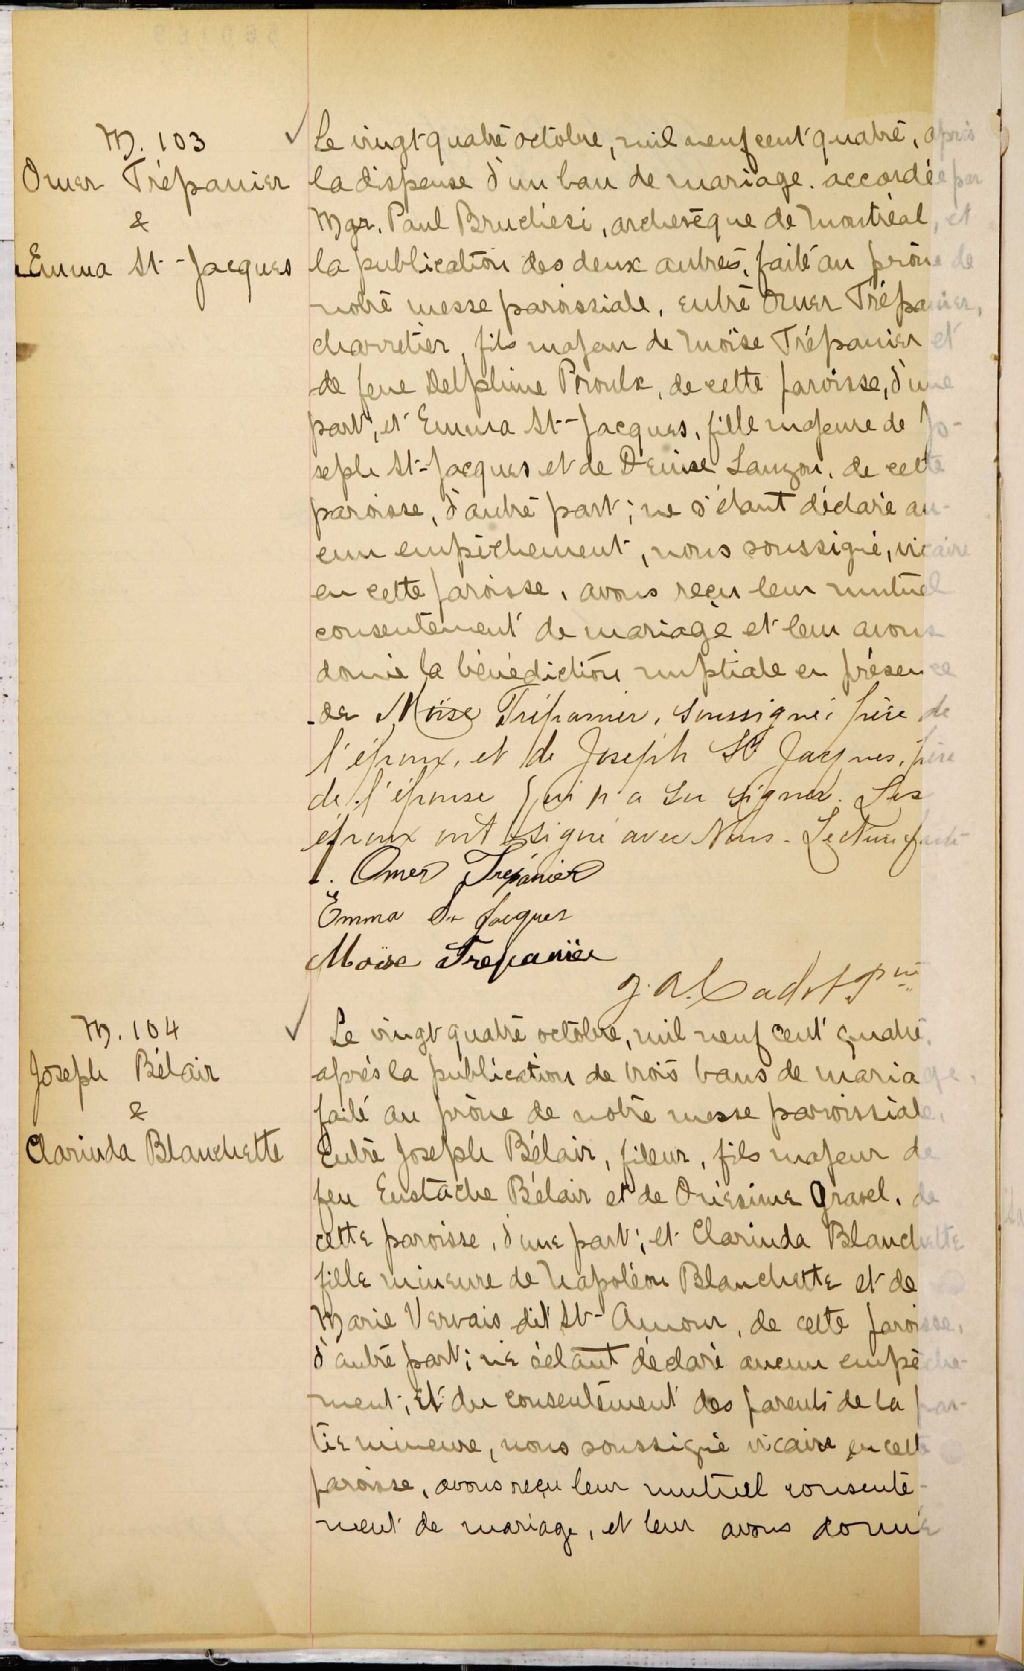 M. 103
Omer Trépanier
&
Emma St-Jacques
Le vingt quatre octobre, mil neuf cent quatre, après
la dispense d'un ban de mariage accordée par
Mgr. Paul Bruchési, archevêque de Montréal, et
la publication des deux autres, faite au prône de
notre messe paroissiale, entre Omer Trépanier,
charretier, fils majeur de Moïse Trépanier et
de feue Delphine Proulx, de cette paroisse, d'une
part, et Emma St-Jacques, fille majeure de Jo-
seph St-Jacques et de Denise Lauzon, de cette
paroisse, d'autre part; ne s'étant déclaré au-
cun empêchement, nous soussigné, vicaire
en cette paroisse, avons reçu leur mutuel
consentement de mariage et leur avons
donné la bénédiction nuptiale en présence
de Moïse Trépanier, soussigné, père de
l'époux, et de Joseph St Jacques, père
de l'épouse qui n'a su signer. Les
époux ont signé avec Nous. Lecture faite
Omer Trépanier
Emma St Jacques
Moïse Trepanier
J. A. Cadot Ptre
M. 104
Joseph Bélair
&
Clarinda Blanchette
Le vingt quatre octobre, mil neuf cent quatre,
après la publication de trois bans de mariage,
faite au prône de notre messe paroissiale,
entre Joseph Bélair, fileur, fils majeur de
feu Eustache Bélair et de Onésime Gravel, de
cette paroisse, d'une part; et Clarinda Blanchette
fille mineure de Napoléon Blanchette et de
Marie Vervais dit St-Amour, de cette paroisse,
d'autre part; ne s'étant déclaré aucun empêche-
ment; Et du consentement des parents de la par-
tie mineure, nous soussigné vicaire en cette
paroisse, avons reçu leur mutuel consente-
ment de mariage, et leur avons donné